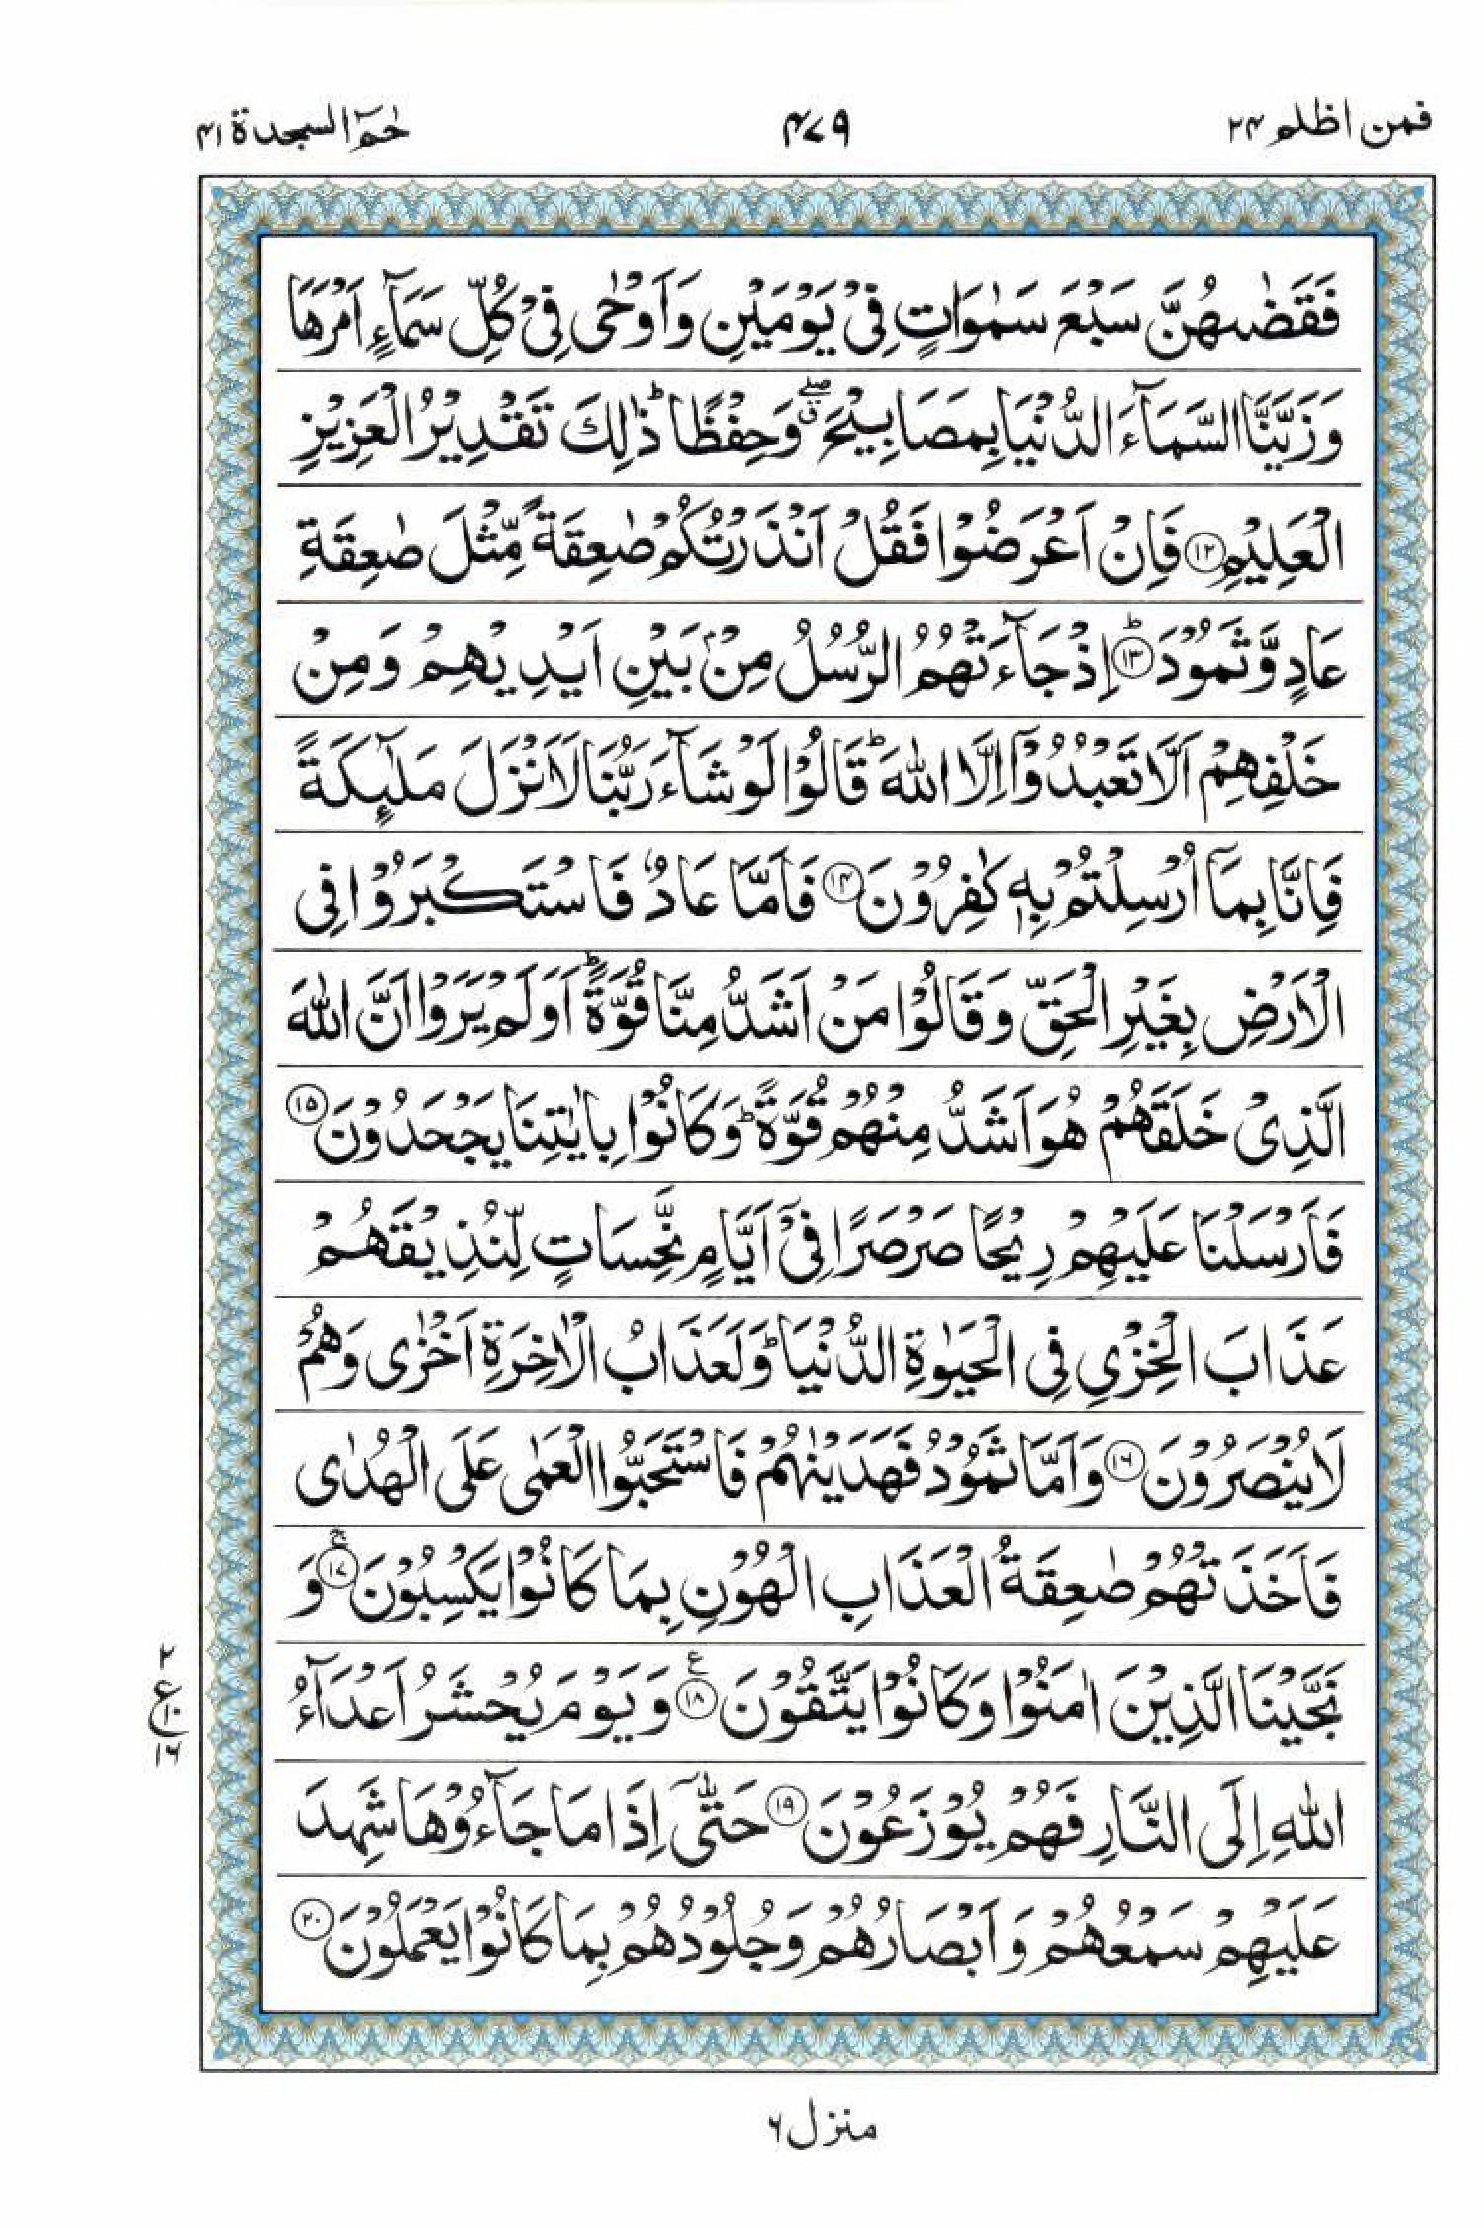 فمن اظلم ۲۴
۴۷۹
حٰمٓ السجدة ۴۱
فَقَضٰىهُنَّ سَبْعَ سَمٰوَاتٍ فِىْ يَوْمَيْنِ وَاَوْحٰى فِىْ كُلِّ سَمَآءٍ اَمْرَهَا
وَزَيَّنَّا السَّمَآءَ الدُّنْيَا بِمَصَابِيْحَ ۖق وَحِفْظًا ؕ ذٰلِكَ تَقْدِيْرُ الْعَزِيْزِ
الْعَلِيْمِ ﴿۱۲﴾ فَاِنْ اَعْرَضُوْا فَقُلْ اَنْذَرْتُكُمْ صٰعِقَةً مِّثْلَ صٰعِقَةِ
عَادٍ وَّثَمُوْدَ ؕ﴿۱۳﴾ اِذْ جَآءَتْهُمُ الرُّسُلُ مِنْۢ بَيْنِ اَيْدِيْهِمْ وَمِنْ
خَلْفِهِمْ اَلَّا تَعْبُدُوْۤا اِلَّا اللّٰهَ ؕ قَالُوْا لَوْ شَآءَ رَبُّنَا لَاَنْزَلَ مَلٰٓئِكَةً
فَاِنَّا بِمَاۤ اُرْسِلْتُمْ بِهٖ كٰفِرُوْنَ ﴿۱۴﴾ فَاَمَّا عَادٌ فَاسْتَكْبَرُوْا فِى
الْاَرْضِ بِغَيْرِ الْحَقِّ وَقَالُوْا مَنْ اَشَدُّ مِنَّا قُوَّةً ؕ اَوَلَمْ يَرَوْا اَنَّ اللّٰهَ
الَّذِىْ خَلَقَهُمْ هُوَ اَشَدُّ مِنْهُمْ قُوَّةً ؕ وَكَانُوْا بِاٰيٰتِنَا يَجْحَدُوْنَ ﴿۱۵﴾
فَاَرْسَلْنَا عَلَيْهِمْ رِيْحًا صَرْصَرًا فِىْۤ اَيَّامٍ نَّحِسَاتٍ لِّنُذِيْقَهُمْ
عَذَابَ الْخِزْىِ فِى الْحَيٰوةِ الدُّنْيَا ؕ وَلَعَذَابُ الْاٰخِرَةِ اَخْزٰى وَهُمْ
لَا يُنْصَرُوْنَ ﴿۱۶﴾ وَاَمَّا ثَمُوْدُ فَهَدَيْنٰهُمْ فَاسْتَحَبُّوا الْعَمٰى عَلَى الْهُدٰى
فَاَخَذَتْهُمْ صٰعِقَةُ الْعَذَابِ الْهُوْنِ بِمَا كَانُوْا يَكْسِبُوْنَ ۚ﴿۱۷﴾ وَ
نَجَّيْنَا الَّذِيْنَ اٰمَنُوْا وَكَانُوْا يَتَّقُوْنَ ﴿۱۸﴾ع وَيَوْمَ يُحْشَرُ اَعْدَآءُ
اللّٰهِ اِلَى النَّارِ فَهُمْ يُوْزَعُوْنَ ﴿۱۹﴾ حَتّٰۤى اِذَا مَا جَآءُوْهَا شَهِدَ
عَلَيْهِمْ سَمْعُهُمْ وَاَبْصَارُهُمْ وَجُلُوْدُهُمْ بِمَا كَانُوْا يَعْمَلُوْنَ ﴿۲۰﴾
۲
ع ۱۰
۱۶
منزل ۶